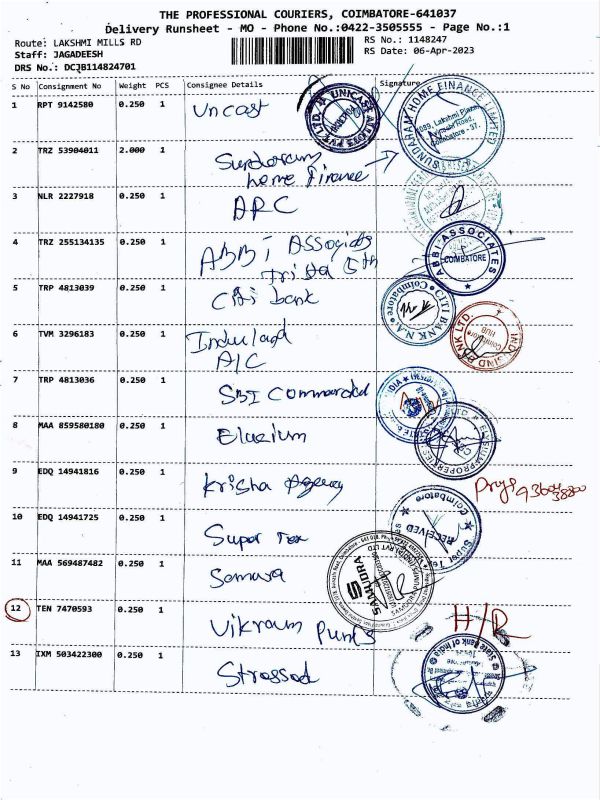 THE PROFESSIONAL COURIERS, COIMBATORE-641037
Delivery Runsheet - MO - Phone No.:0422-3505555 - Page No.:1
Route: LAKSHMI MILLS RD
RS No.: 1148247
Staff: JAGADEESH
RS Date: 06-Apr-2023
DRS No.: DCJB114824701
S No Consignment No Weight PCS Consignee Details Signature
1 RPT 9142580 0.250 1 Uncast
2 TRZ 53904011 2.000 1 Sundaram
home finance
SUNDARAM HOME FINANCE LIMITED
Coimbatore - 37.
3 NLR 2227918 0.250 1 ARC
4 TRZ 255134135 0.250 1 ABBI Associats
5th
ABBI ASSOCIATES
COIMBATORE
5 TRP 4813039 0.250 1 Citi bank
CITI BANK N.A
Coimbatore
6 TVM 3296183 0.250 1 A/C
INDUSIND BANK LTD.
Coimbatore
HUB
7 TRP 4813036 0.250 1 SBI
8 MAA 859580180 0.250 1
9 EDQ 14941816 0.250 1 Krisha Agency
10 EDQ 14941725 0.250 1 Super Tex
RECEIVED
Coimbatore
11 MAA 569487482 0.250 1
SAMUDRA
12 TEN 7470593 0.250 1 Vikram Pumps
H/R
13 IXM 503422300 0.250 1
State Bank of India